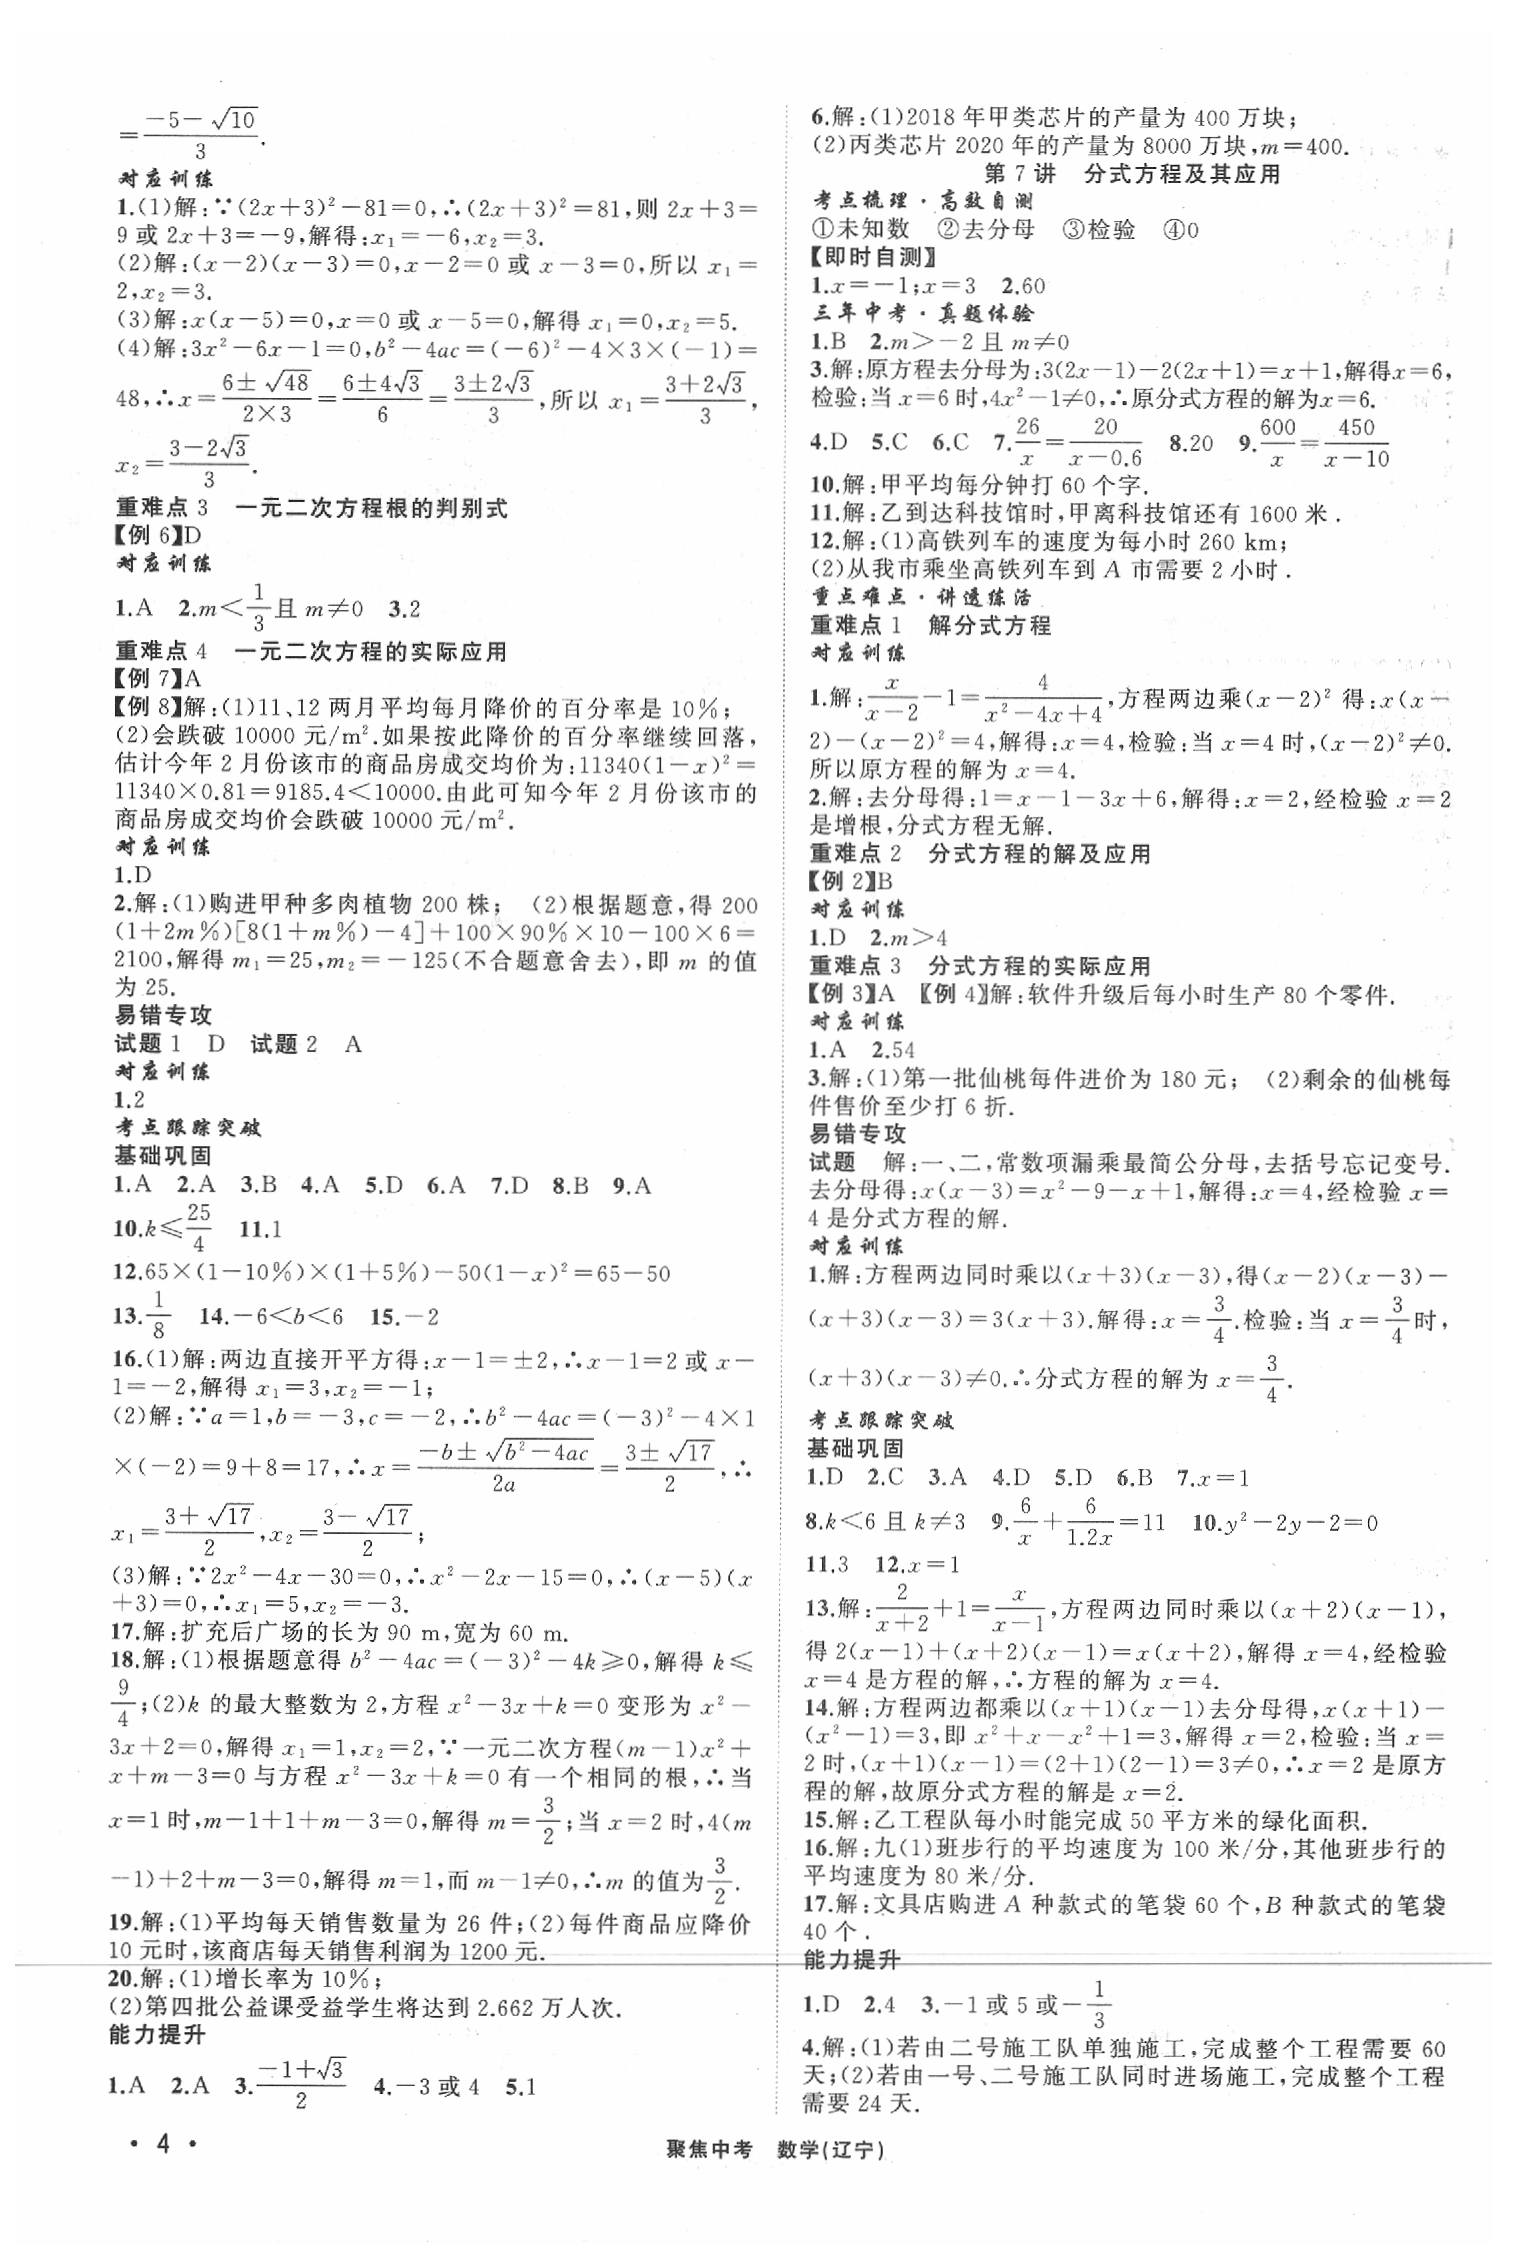 =(-5-√10)/3.
对应训练
1.(1)解:∵(2x+3)²-81=0,∴(2x+3)²=81,则 2x+3=
9 或 2x+3=-9,解得:x₁=-6,x₂=3.
(2)解:(x-2)(x-3)=0,x-2=0 或 x-3=0,所以 x₁=
2,x₂=3.
(3)解:x(x-5)=0,x=0 或 x-5=0,解得 x₁=0,x₂=5.
(4)解:3x²-6x-1=0,b²-4ac=(-6)²-4×3×(-1)=
48,∴x=(6±√48)/(2×3)=(6±4√3)/6=(3±2√3)/3,所以 x₁=(3+2√3)/3,
x₂=(3-2√3)/3.
重难点 3 一元二次方程根的判别式
【例 6】D
对应训练
1.A 2.m<1/3且 m≠0 3.2
重难点 4 一元二次方程的实际应用
【例 7】A
【例 8】解:(1)11、12 两月平均每月降价的百分率是 10%;
(2)会跌破 10000 元/m².如果按此降价的百分率继续回落,
估计今年 2 月份该市的商品房成交均价为:11340(1-x)²=
11340×0.81=9185.4<10000.由此可知今年 2 月份该市的
商品房成交均价会跌破 10000 元/m².
对应训练
1.D
2.解:(1)购进甲种多肉植物 200 株; (2)根据题意,得 200
(1+2m%)[8(1+m%)-4]+100×90%×10-100×6=
2100,解得 m₁=25,m₂=-125(不合题意舍去),即 m 的值
为 25.
易错专攻
试题 1 D 试题 2 A
对应训练
1.2
考点跟踪突破
基础巩固
1.A 2.A 3.B 4.A 5.D 6.A 7.D 8.B 9.A
10.k≤25/4 11.1
12.65×(1-10%)×(1+5%)-50(1-x)²=65-50
13.1/8 14.-6<b<6 15.-2
16.(1)解:两边直接开平方得:x-1=±2,∴x-1=2 或 x-
1=-2,解得 x₁=3,x₂=-1;
(2)解:∵a=1,b=-3,c=-2,∴b²-4ac=(-3)²-4×1
×(-2)=9+8=17,∴x=(-b±√(b²-4ac))/2a=(3±√17)/2,∴
x₁=(3+√17)/2,x₂=(3-√17)/2;
(3)解:∵2x²-4x-30=0,∴x²-2x-15=0,∴(x-5)(x
+3)=0,∴x₁=5,x₂=-3.
17.解:扩充后广场的长为 90 m,宽为 60 m.
18.解:(1)根据题意得 b²-4ac=(-3)²-4k≥0,解得 k≤
9/4;(2)k 的最大整数为 2,方程 x²-3x+k=0 变形为 x²-
3x+2=0,解得 x₁=1,x₂=2,∵一元二次方程(m-1)x²+
x+m-3=0 与方程 x²-3x+k=0 有一个相同的根,∴当
x=1 时,m-1+1+m-3=0,解得 m=3/2;当 x=2 时,4(m
-1)+2+m-3=0,解得 m=1,而 m-1≠0,∴m 的值为3/2.
19.解:(1)平均每天销售数量为 26 件;(2)每件商品应降价
10 元时,该商店每天销售利润为 1200 元.
20.解:(1)增长率为 10%;
(2)第四批公益课受益学生将达到 2.662 万人次.
能力提升
1.A 2.A 3.(-1+√3)/2 4.-3 或 4 5.1
6.解:(1)2018 年甲类芯片的产量为 400 万块;
(2)丙类芯片 2020 年的产量为 8000 万块,m=400.
第 7 讲 分式方程及其应用
考点梳理·高效自测
①未知数 ②去分母 ③检验 ④0
【即时自测】
1.x=-1;x=3 2.60
三年中考·真题体验
1.B 2.m>-2 且 m≠0
3.解:原方程去分母为:3(2x-1)-2(2x+1)=x+1,解得x=6,
检验:当 x=6 时,4x²-1≠0,∴原分式方程的解为x=6.
4.D 5.C 6.C 7.26/x=20/(x-0.6) 8.20 9.600/x=450/(x-10)
10.解:甲平均每分钟打 60 个字.
11.解:乙到达科技馆时,甲离科技馆还有 1600 米.
12.解:(1)高铁列车的速度为每小时 260 km;
(2)从我市乘坐高铁列车到 A 市需要 2 小时.
重点难点·讲透练活
重难点 1 解分式方程
对应训练
1.解:x/(x-2)-1=4/(x²-4x+4),方程两边乘(x-2)² 得:x(x-
2)-(x-2)²=4,解得:x=4,检验:当 x=4 时,(x-2)²≠0.
所以原方程的解为 x=4.
2.解:去分母得:1=x-1-3x+6,解得:x=2,经检验 x=2
是增根,分式方程无解.
重难点 2 分式方程的解及应用
【例 2】B
对应训练
1.D 2.m>4
重难点 3 分式方程的实际应用
【例 3】A 【例 4】解:软件升级后每小时生产 80 个零件.
对应训练
1.A 2.54
3.解:(1)第一批仙桃每件进价为 180 元; (2)剩余的仙桃每
件售价至少打 6 折.
易错专攻
试题 解:一、二,常数项漏乘最简公分母,去括号忘记变号.
去分母得:x(x-3)=x²-9-x+1,解得:x=4,经检验 x=
4 是分式方程的解.
对应训练
1.解:方程两边同时乘以(x+3)(x-3),得(x-2)(x-3)-
(x+3)(x-3)=3(x+3).解得:x=3/4.检验:当 x=3/4时,
(x+3)(x-3)≠0.∴分式方程的解为 x=3/4.
考点跟踪突破
基础巩固
1.D 2.C 3.A 4.D 5.D 6.B 7.x=1
8.k<6 且 k≠3 9.6/x+6/1.2x=11 10.y²-2y-2=0
11.3 12.x=1
13.解:2/(x+2)+1=x/(x-1),方程两边同时乘以(x+2)(x-1),
得 2(x-1)+(x+2)(x-1)=x(x+2),解得 x=4,经检验
x=4 是方程的解,∴方程的解为 x=4.
14.解:方程两边都乘以(x+1)(x-1)去分母得,x(x+1)-
(x²-1)=3,即 x²+x-x²+1=3,解得 x=2,检验:当 x=
2 时,(x+1)(x-1)=(2+1)(2-1)=3≠0,∴x=2 是原方
程的解,故原分式方程的解是 x=2.
15.解:乙工程队每小时能完成 50 平方米的绿化面积.
16.解:九(1)班步行的平均速度为 100 米/分,其他班步行的
平均速度为 80 米/分.
17.解:文具店购进 A 种款式的笔袋 60 个,B 种款式的笔袋
40 个.
能力提升
1.D 2.4 3.-1 或 5 或-1/3
4.解:(1)若由二号施工队单独施工,完成整个工程需要 60
天;(2)若由一号、二号施工队同时进场施工,完成整个工程
需要 24 天.
· 4 ·
聚焦中考 数学(辽宁)